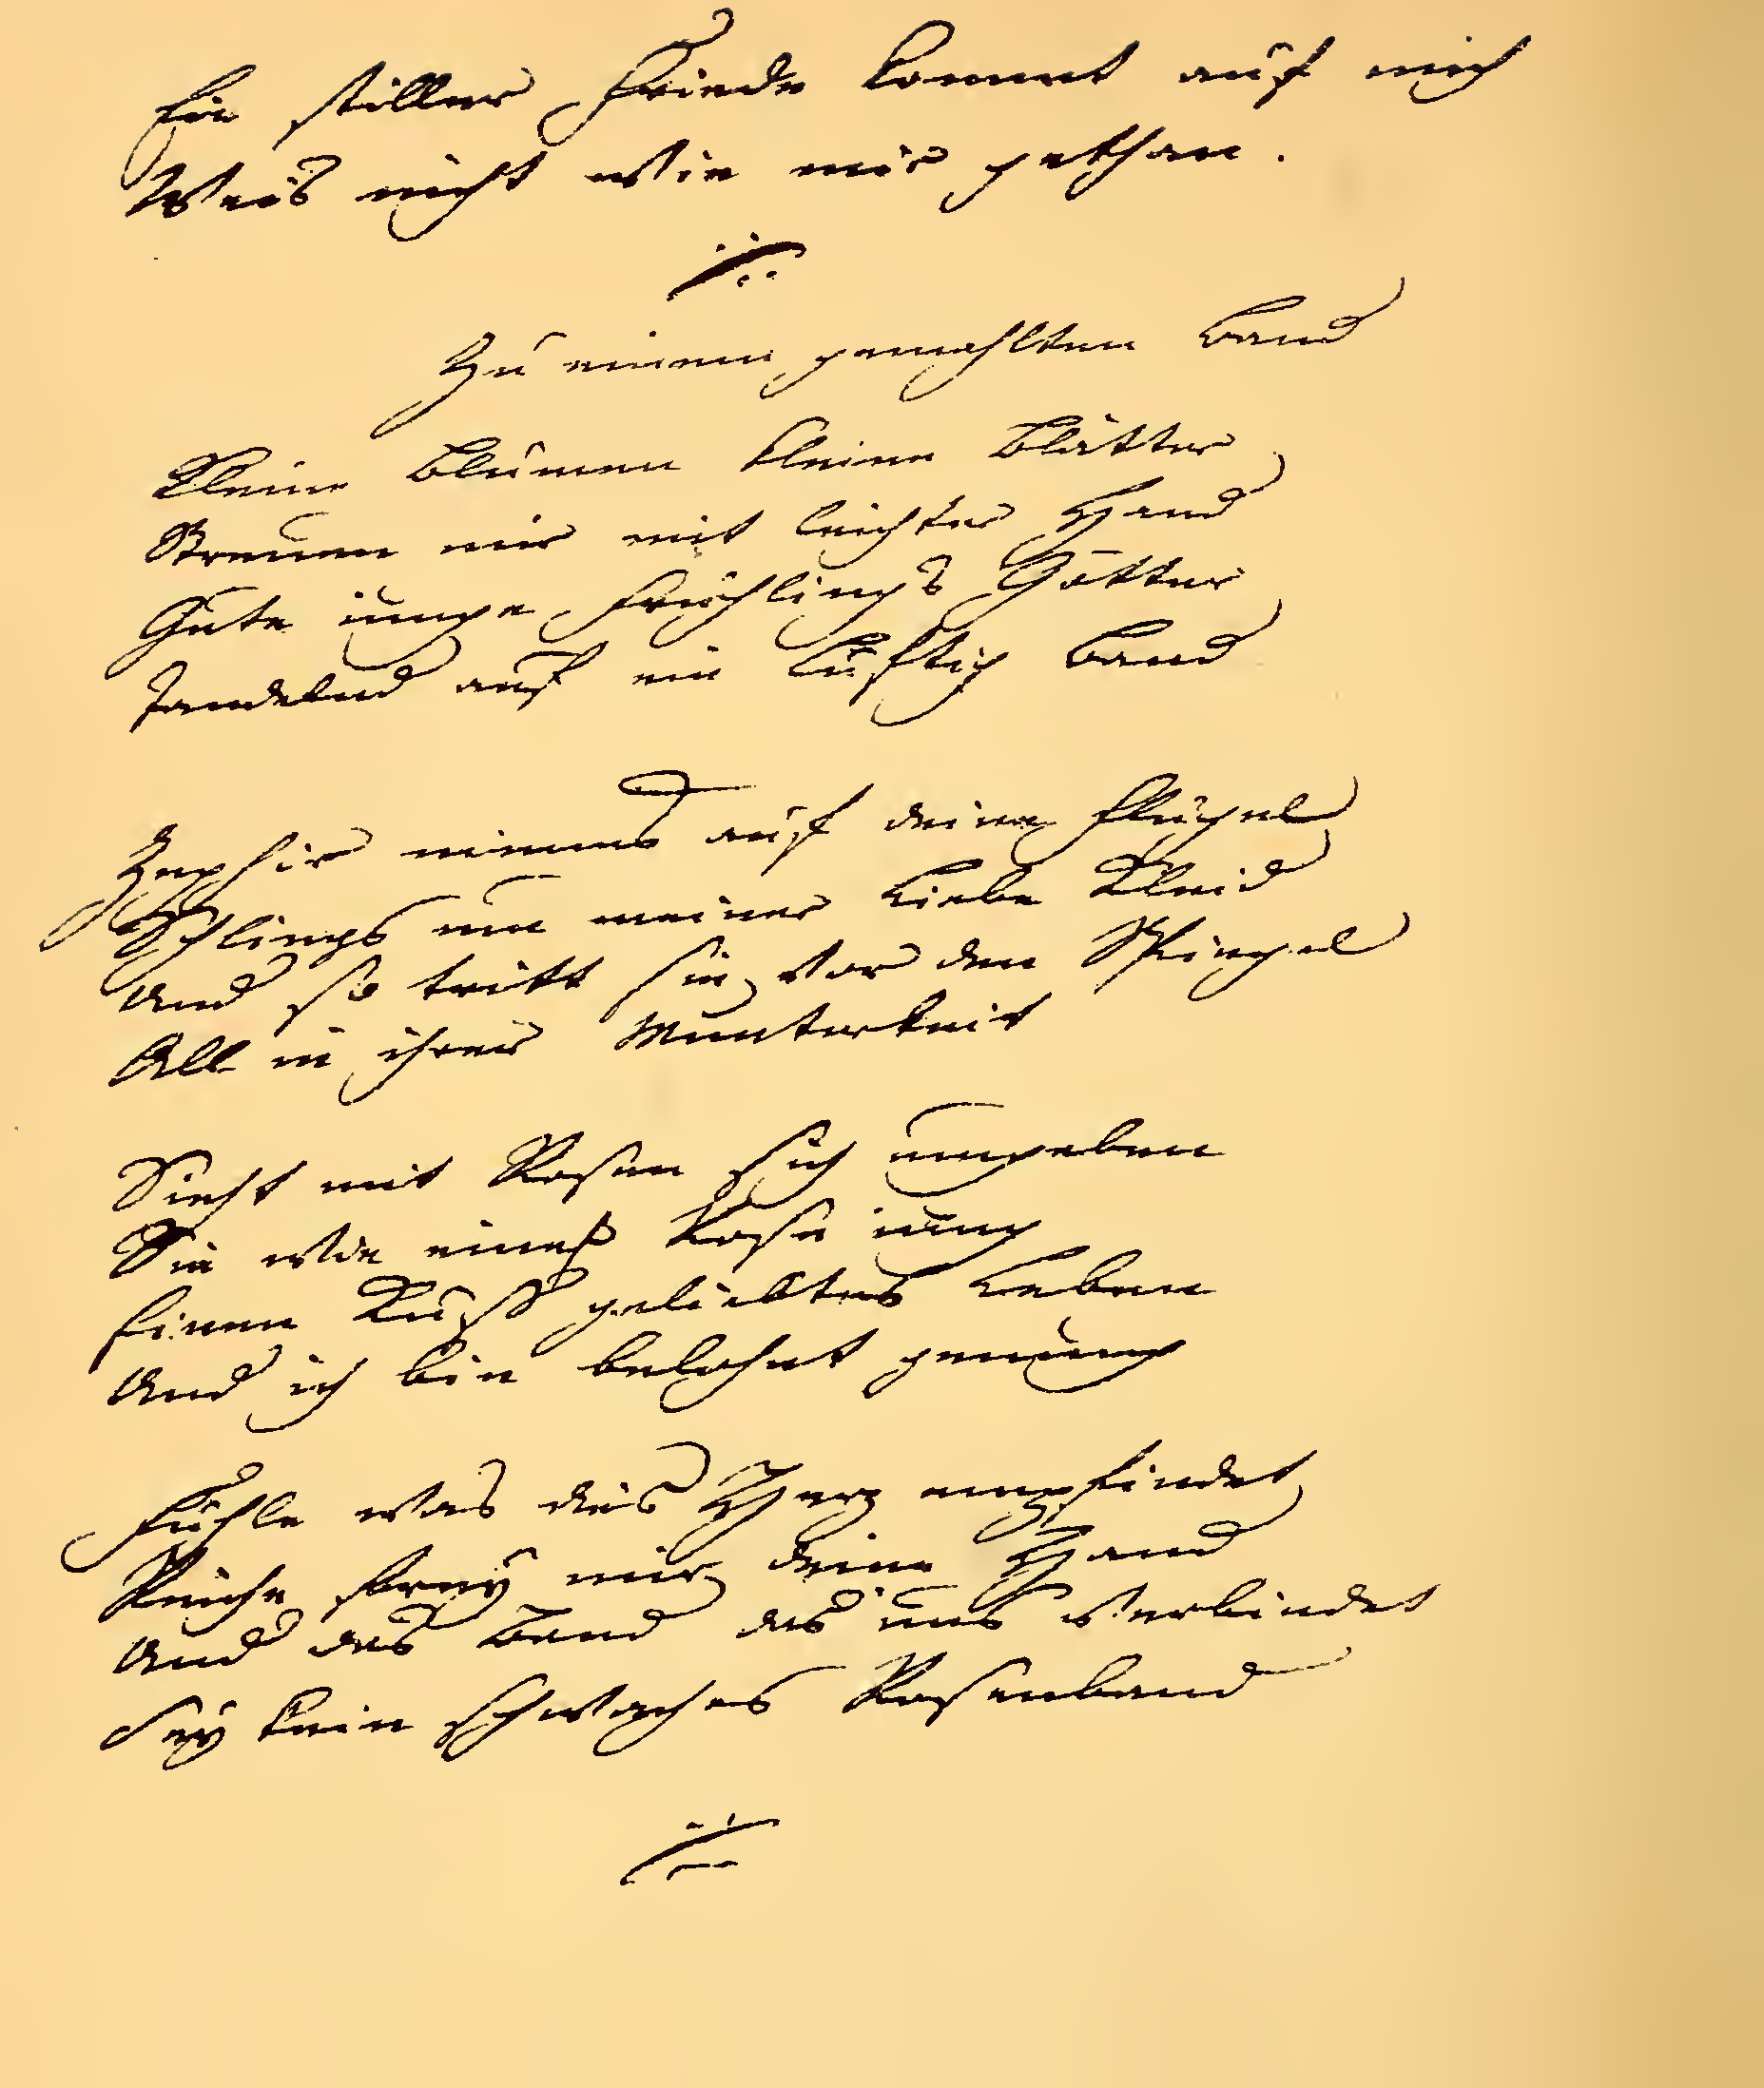 Ein stiller Friede kommt auf mich
Weis nicht wie mir gethan.
Zu einem gemahlten Band
Kleine Blumen kleine Blätter
Streuen mir mit leichter Hand
Gute iunge Frühlings Götter
Tandelnd auf ein lüftig Band
Zephir nimms auf deine Flügel
Schlings um meiner Liebe Kleid
Und so tritt sie vor den Spiegel
All in ihrer Munterkeit
Sieht mit Rosen sich umgeben
Sie wie eine Rose iung
Einen Kuss geliebtes Leben
Und ich bin belohnt genung
Fühle was dies Herz empfindet
Reiche frey mir deine Hand
Und das Band das uns verbindet
Sey kein schwaches Rosenband